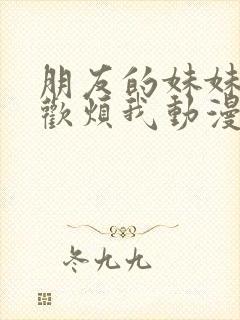 朋友的妹妹
歡煩我動漫
冬九九